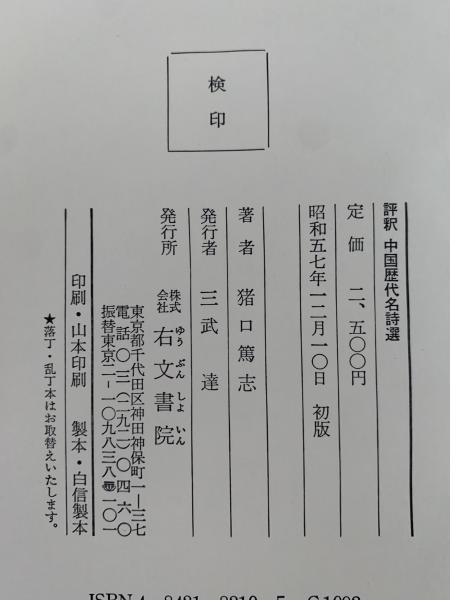 検印
評釈 中国歴代名詩選
定価 二、五〇〇円
昭和五七年一二月一〇日 初版
著者 猪口篤志
発行者 三武達
発行所 株式会社 右文書院
ゆうぶんしょいん
東京都千代田区神田神保町一―三七
電話〇三(二九二)〇四六〇
振替東京二―一〇九八三八 〒一〇一
印刷・山本印刷 製本・白信製本
★落丁・乱丁本はお取替えいたします。